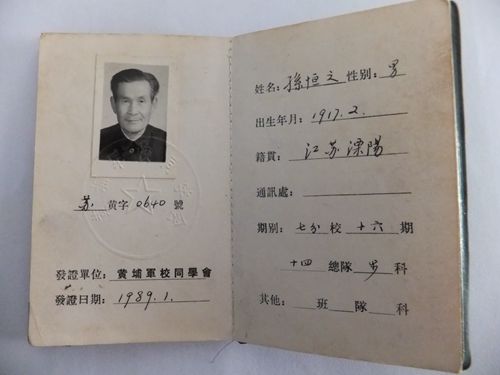 苏 黄字 0640 號
發證單位: 黄埔軍校同學會
發證日期: 1989.1.
姓名: 孫恒文 性别: 男
出生年月: 1917.2.
籍貫: 江苏溧陽
通訊處:
期别: 七分校 十六 期
十四 總隊 步 科
其他: 班 隊 科